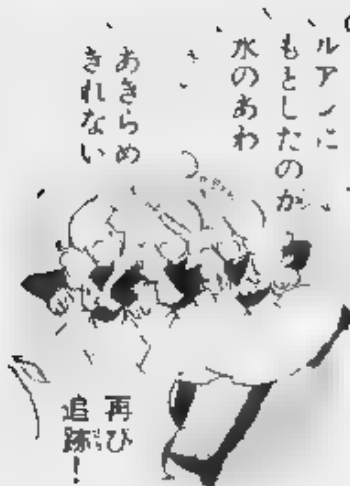 ルアンに
もとしたのが
水のあわ
あきらめ
きれない
再び
追跡!